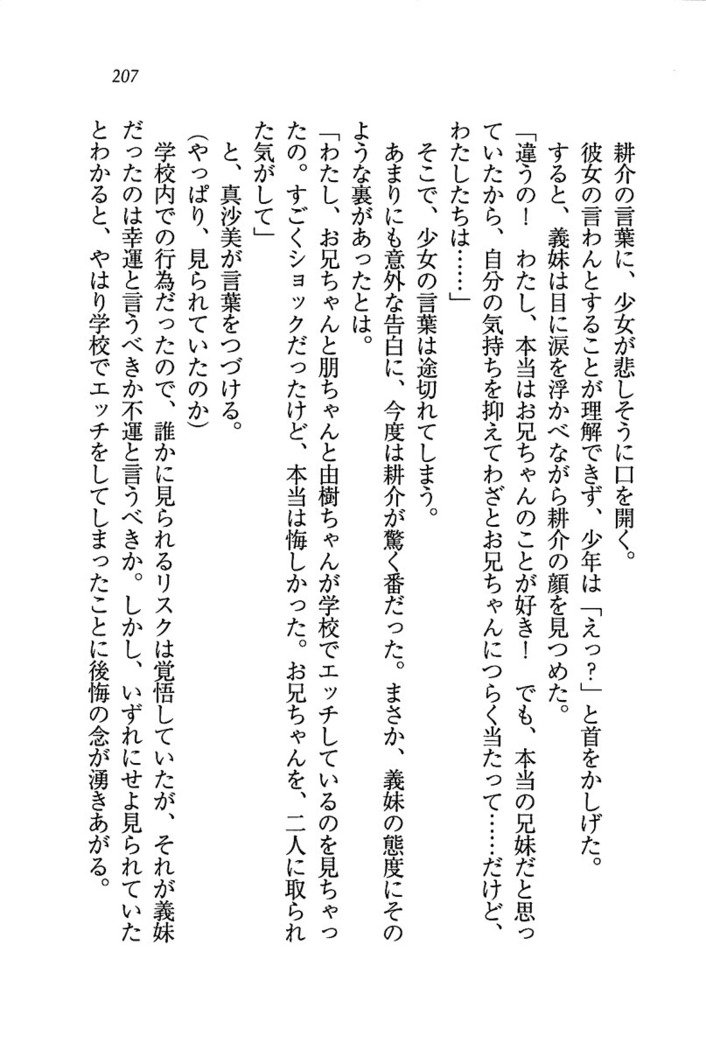 207
耕介の言葉に、少女が悲しそうに口を開く。
彼女の言わんとすることが理解できず、少年は「えっ？」と首をかしげた。
すると、義妹は目に涙を浮かべながら耕介の顔を見つめた。
「違うの！　わたし、本当はお兄ちゃんのことが好き！　でも、本当の兄妹だと思っ
ていたから、自分の気持ちを抑えてわざとお兄ちゃんにつらく当たって……だけど、
わたしたちは……」
そこで、少女の言葉は途切れてしまう。
あまりにも意外な告白に、今度は耕介が驚く番だった。まさか、義妹の態度にその
ような裏があったとは。
「わたし、お兄ちゃんと朋ちゃんと由樹ちゃんが学校でエッチしているのを見ちゃっ
たの。すごくショックだったけど、本当は悔しかった。お兄ちゃんを、二人に取られ
た気がして」
と、真沙美が言葉をつづける。
(やっぱり、見られていたのか)
学校内での行為だったので、誰かに見られるリスクは覚悟していたが、それが義妹
だったのは幸運と言うべきか不運と言うべきか。しかし、いずれにせよ見られていた
とわかると、やはり学校でエッチをしてしまったことに後悔の念が湧きあがる。